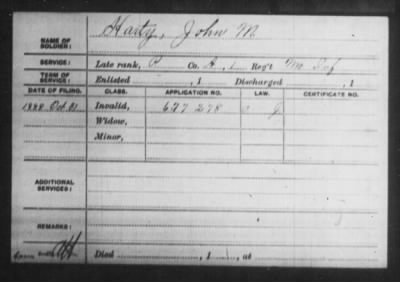 NAME OF SOLDIER: Harty, John M
SERVICE: Late rank, P Co. A, 1 Reg't M Inf
TERM OF SERVICE: Enlisted , 1 Discharged , 1
DATE OF FILING. CLASS. APPLICATION NO. LAW. CERTIFICATE NO.
1888 Oct. Invalid, 677 278 J
Widow,
Minor,
ADDITIONAL SERVICES:
REMARKS:
Died , 1 , at